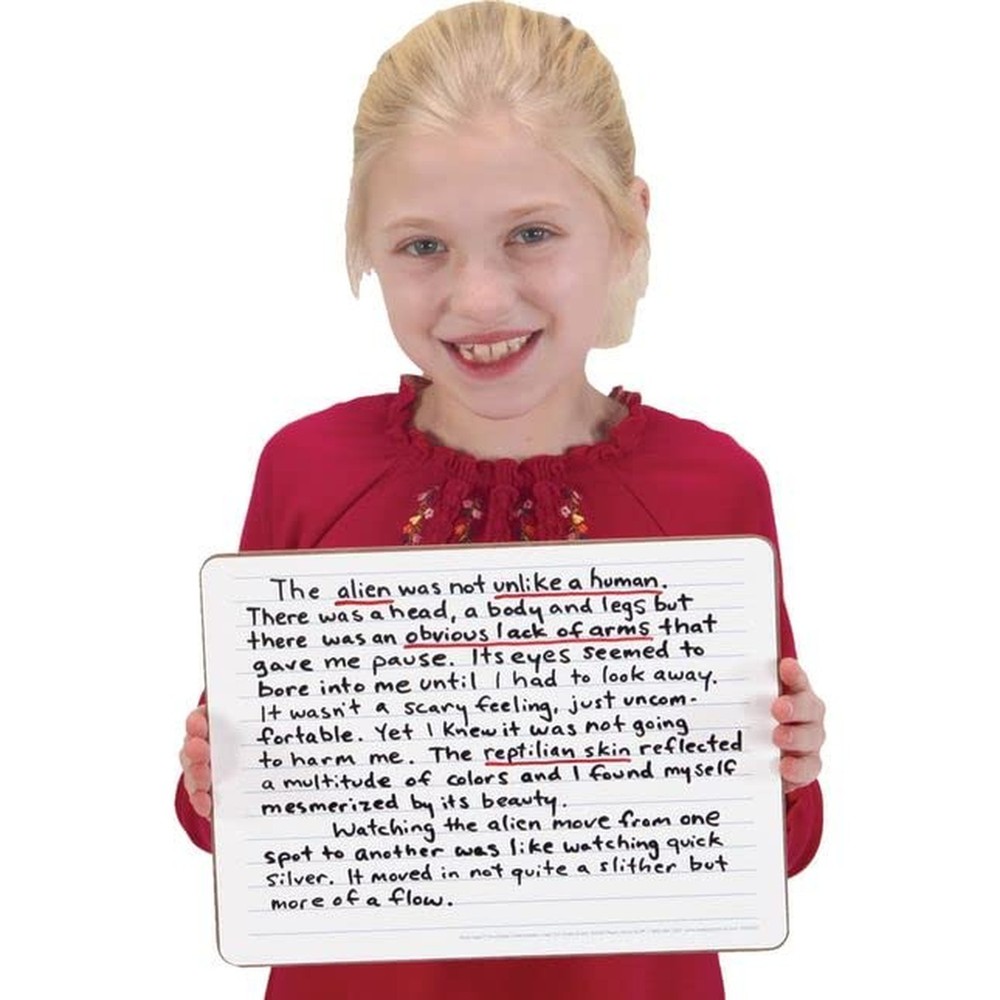 The alien was not unlike a human.
There was a head, a body and legs but
there was an obvious lack of arms that
gave me pause. Its eyes seemed to
bore into me until I had to look away.
It wasn't a scary feeling, just uncom-
fortable. Yet I knew it was not going
to harm me. The reptilian skin reflected
a multitude of colors and I found myself
mesmerized by its beauty.
Watching the alien move from one
spot to another was like watching quick
silver. It moved in not quite a slither but
more of a flow.